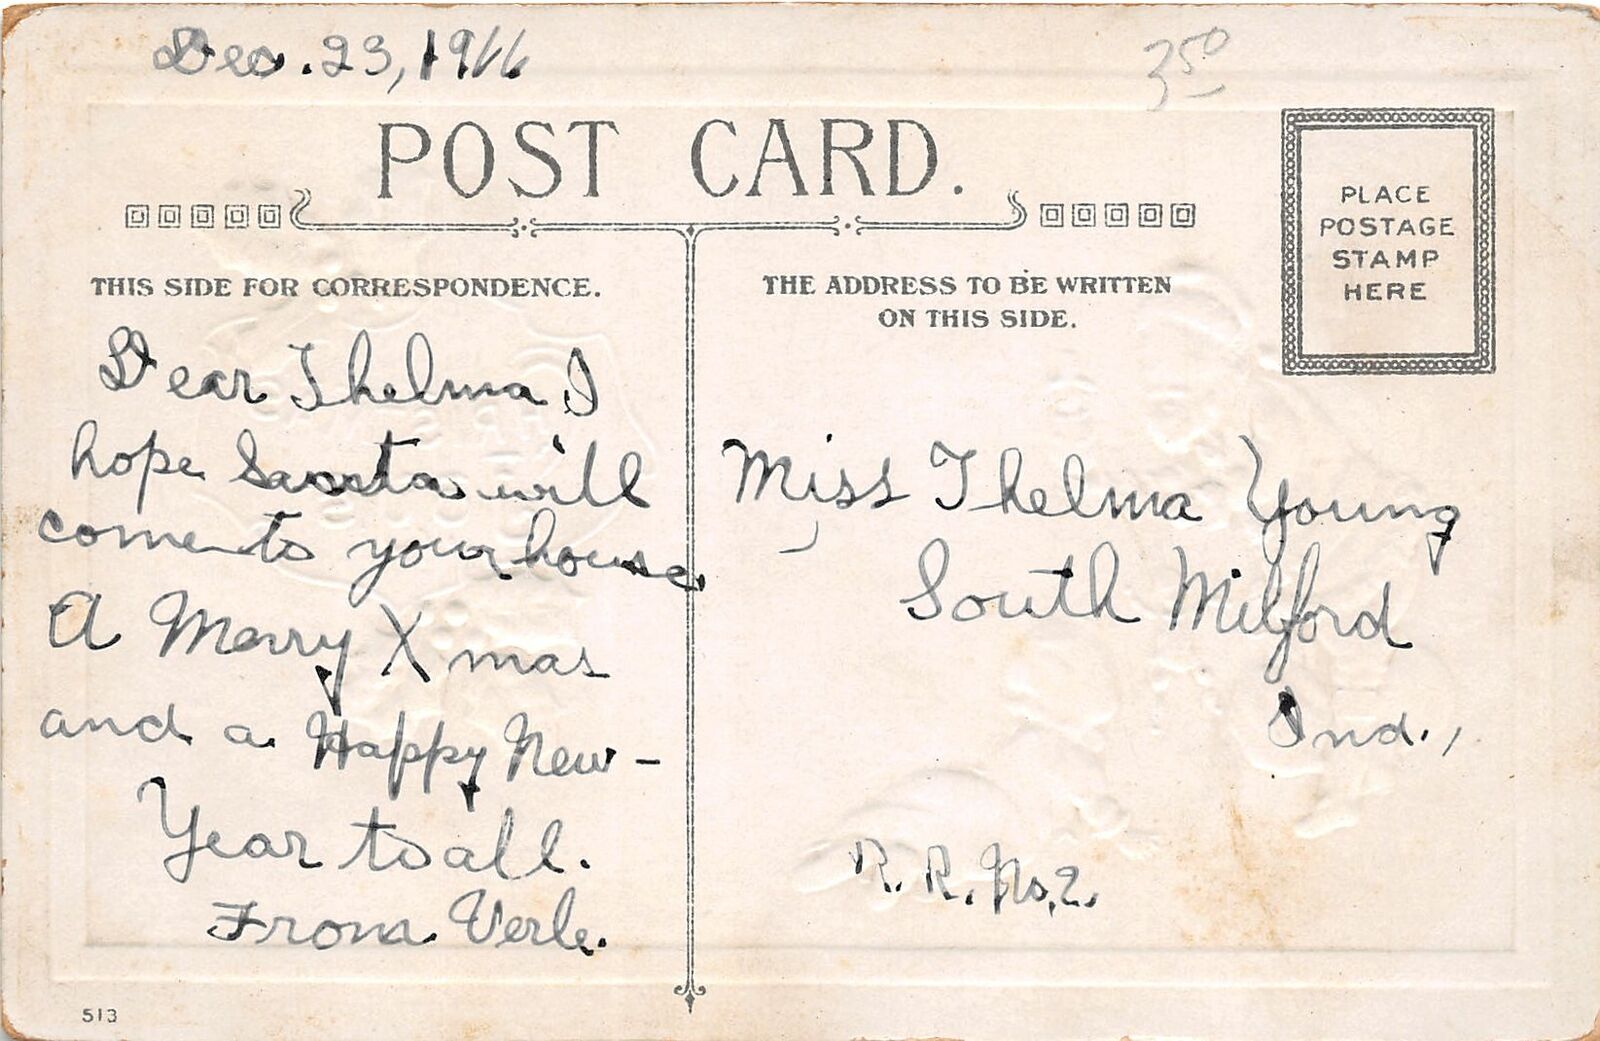 Dec. 23, 1916
3 50
POST CARD.
THIS SIDE FOR CORRESPONDENCE.
THE ADDRESS TO BE WRITTEN
ON THIS SIDE.
PLACE
POSTAGE
STAMP
HERE
Dear Thelma I
hope Santa will
come to your house
A Merry Xmas
and a Happy New-
Year to all.
From Verle.
Miss Thelma Young
South Milford
Ind.,
R. R. No, 2.
513